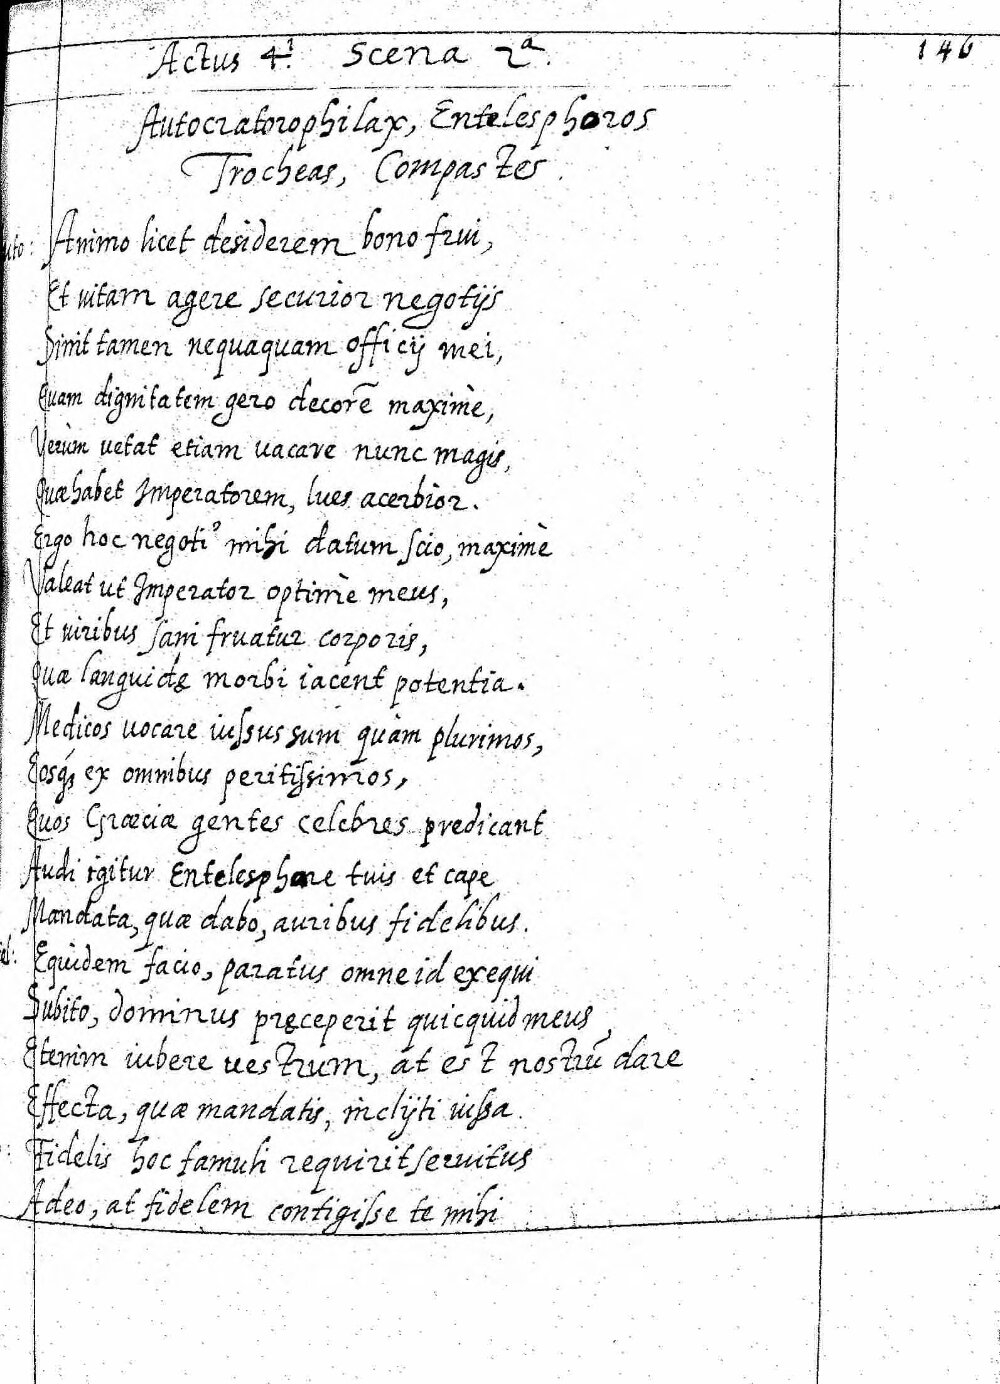 Actus 4.i Scena 2.a
146
Autocratorophilax, Entelesphoros
Trocheas, Compastes.
Auto: Animo licet desiderem bono frui,
Et vitam agere securior negotijs
Sinit tamen nequaquam officij mei,
Quam dignitatem gero decorē maximè,
Verùm vetat etiam vacare nunc magis,
Quæ habet Imperatorem, lues acerbior.
Ergo hoc negoti⁹ mihi datum scio, maximè
Valeat ut Imperator optimè meus,
Et viribus sani fruatur corporis,
Quæ languidę morbi iacent potentia.
Medicos vocare iussus sum quàm plurimos,
Eosq́₃ ex omnibus peritissimos,
Quos Græciæ gentes celebres predicant
Audi igitur Entelesphore tuis et cape
Mandata, quæ dabo, auribus fidelibus.
tel: Equidem facio, paratus omne id exequi
Subito, dominus pręceperit quicquid meus,
Etenim iubere vestrum, at est nostrū dare
Effecta, quæ mandatis, inclyti iussa.
: Fidelis hoc famuli requirit servitus
Adeo, at fidelem contigisse te mihi